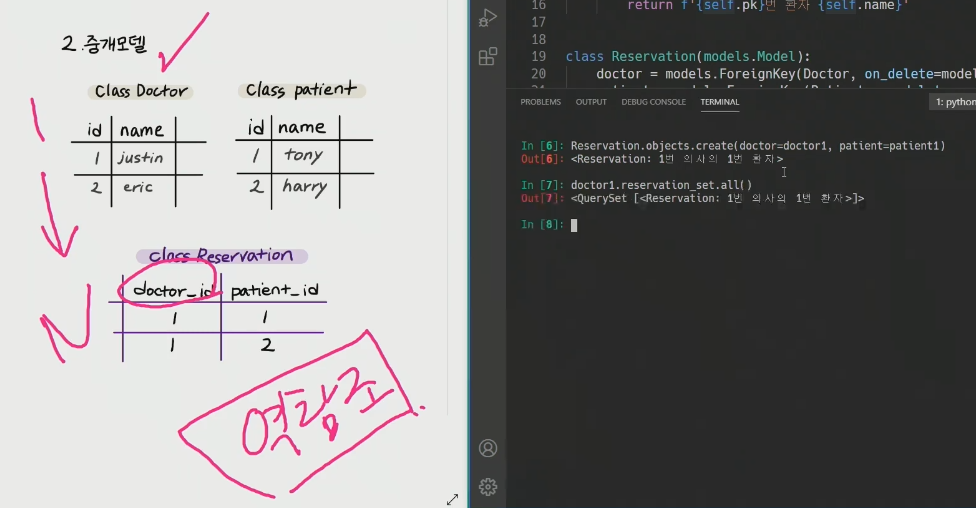 2.중개모델
Class Doctor
Class patient
id name
1 justin
2 eric
id name
1 tony
2 harry
class Reservation
doctor_id patient_id
1 1
1 2
1
N
역참조
16 return f'{self.pk}번 환자 {self.name}'
17
18
19 class Reservation(models.Model):
20 doctor = models.ForeignKey(Doctor, on_delete=model
PROBLEMS OUTPUT DEBUG CONSOLE TERMINAL 1: python
In [6]: Reservation.objects.create(doctor=doctor1, patient=patient1)
Out[6]: <Reservation: 1번 의사의 1번 환자>
In [7]: doctor1.reservation_set.all()
Out[7]: <QuerySet [<Reservation: 1번 의사의 1번 환자>]>
In [8]: